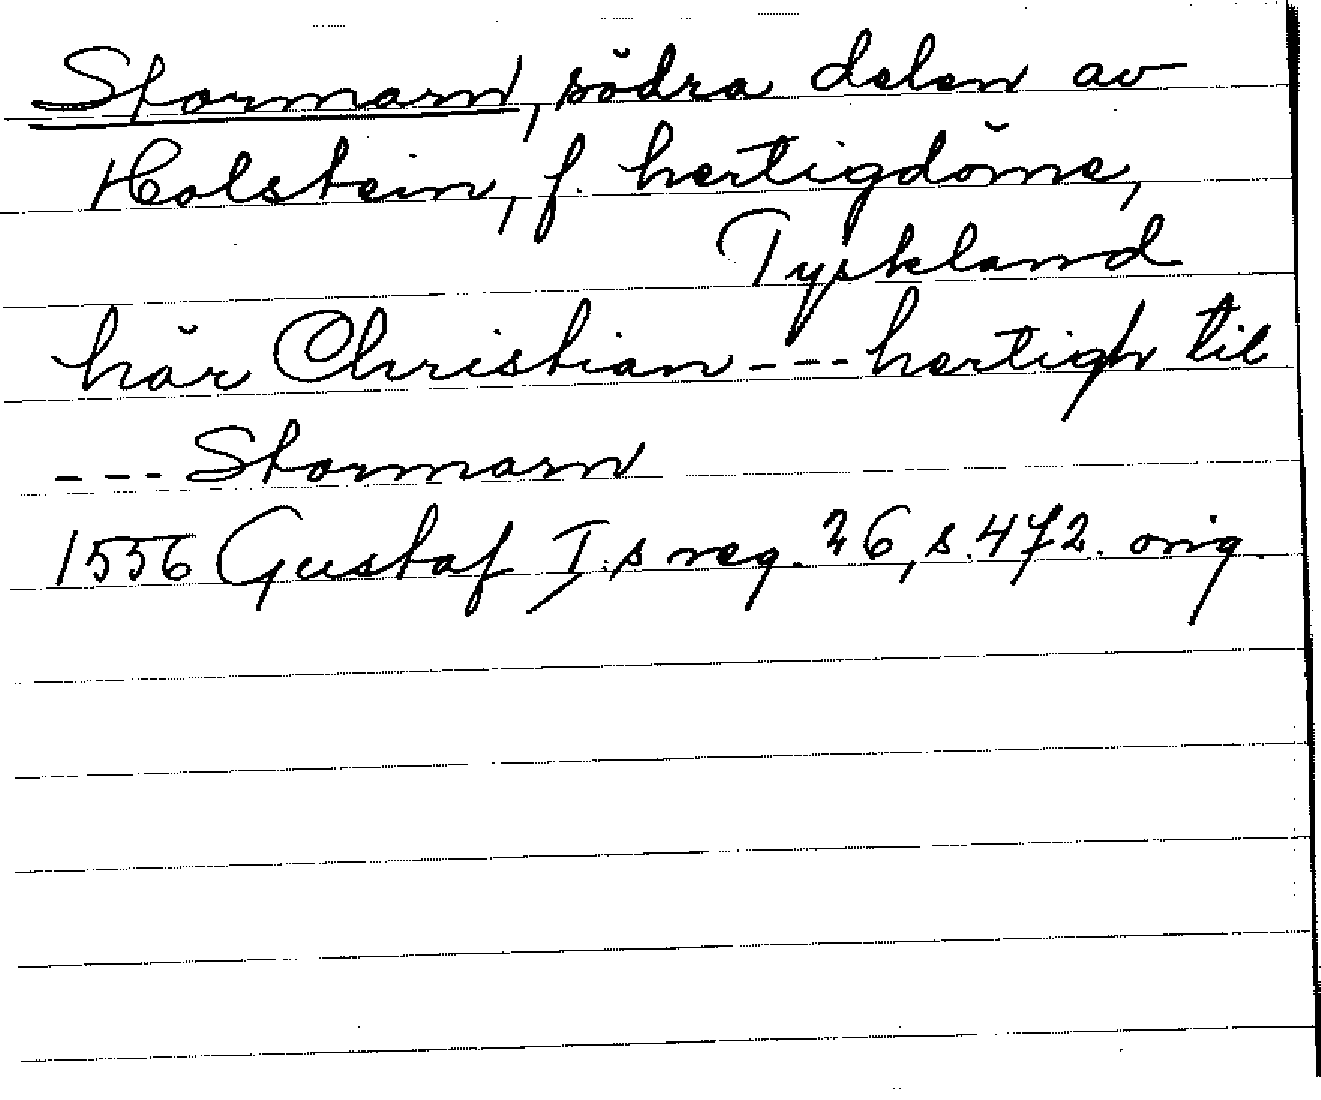 Stormarn, södra delen av
Holstein, f. hertigdöme,
Tyskland
här Christian --- hertigh til
--- Stormarn
1556 Gustaf I:s reg. 26, s. 472. orig.